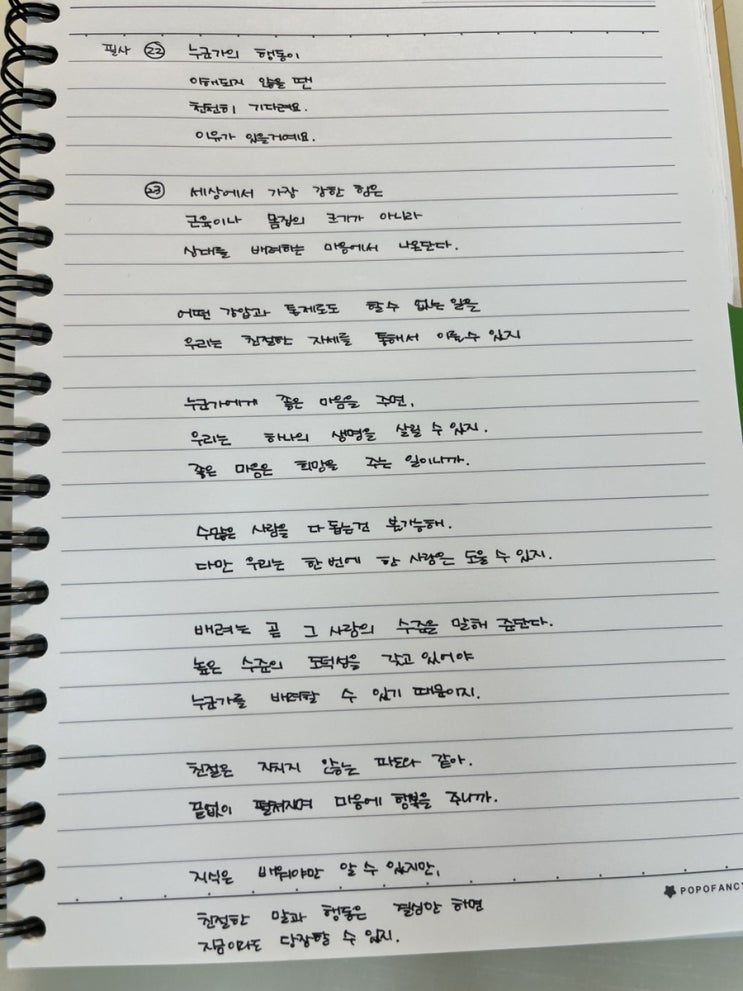 필사 22 누군가의 행동이
이해되지 않을 땐
천천히 기다려요.
이유가 있을거예요.
23 세상에서 가장 강한 힘은
근육이나 몸집의 크기가 아니라
상대를 배려하는 마음에서 나온단다.
어떤 강압과 통제로도 할 수 없는 일을
우리는 친절한 자세를 통해서 이룰 수 있지
누군가에게 좋은 마음을 주면,
우리는 하나의 생명을 살릴 수 있지.
좋은 마음은 희망을 주는 일이니까.
수많은 사람을 다 돕는건 불가능해.
다만 우리는 한 번에 한 사람은 도울 수 있지.
배려는 곧 그 사람의 수준을 말해 준단다.
높은 수준의 도덕성을 갖고 있어야
누군가를 배려할 수 있기 때문이지.
친절은 지치지 않는 파도와 같아.
끝없이 펼쳐지며 마음에 행복을 주니까.
지식은 배워야만 알 수 있지만,
POPOFANCY
친절한 말과 행동은 결심만 하면
지금이라도 당장할 수 있지.